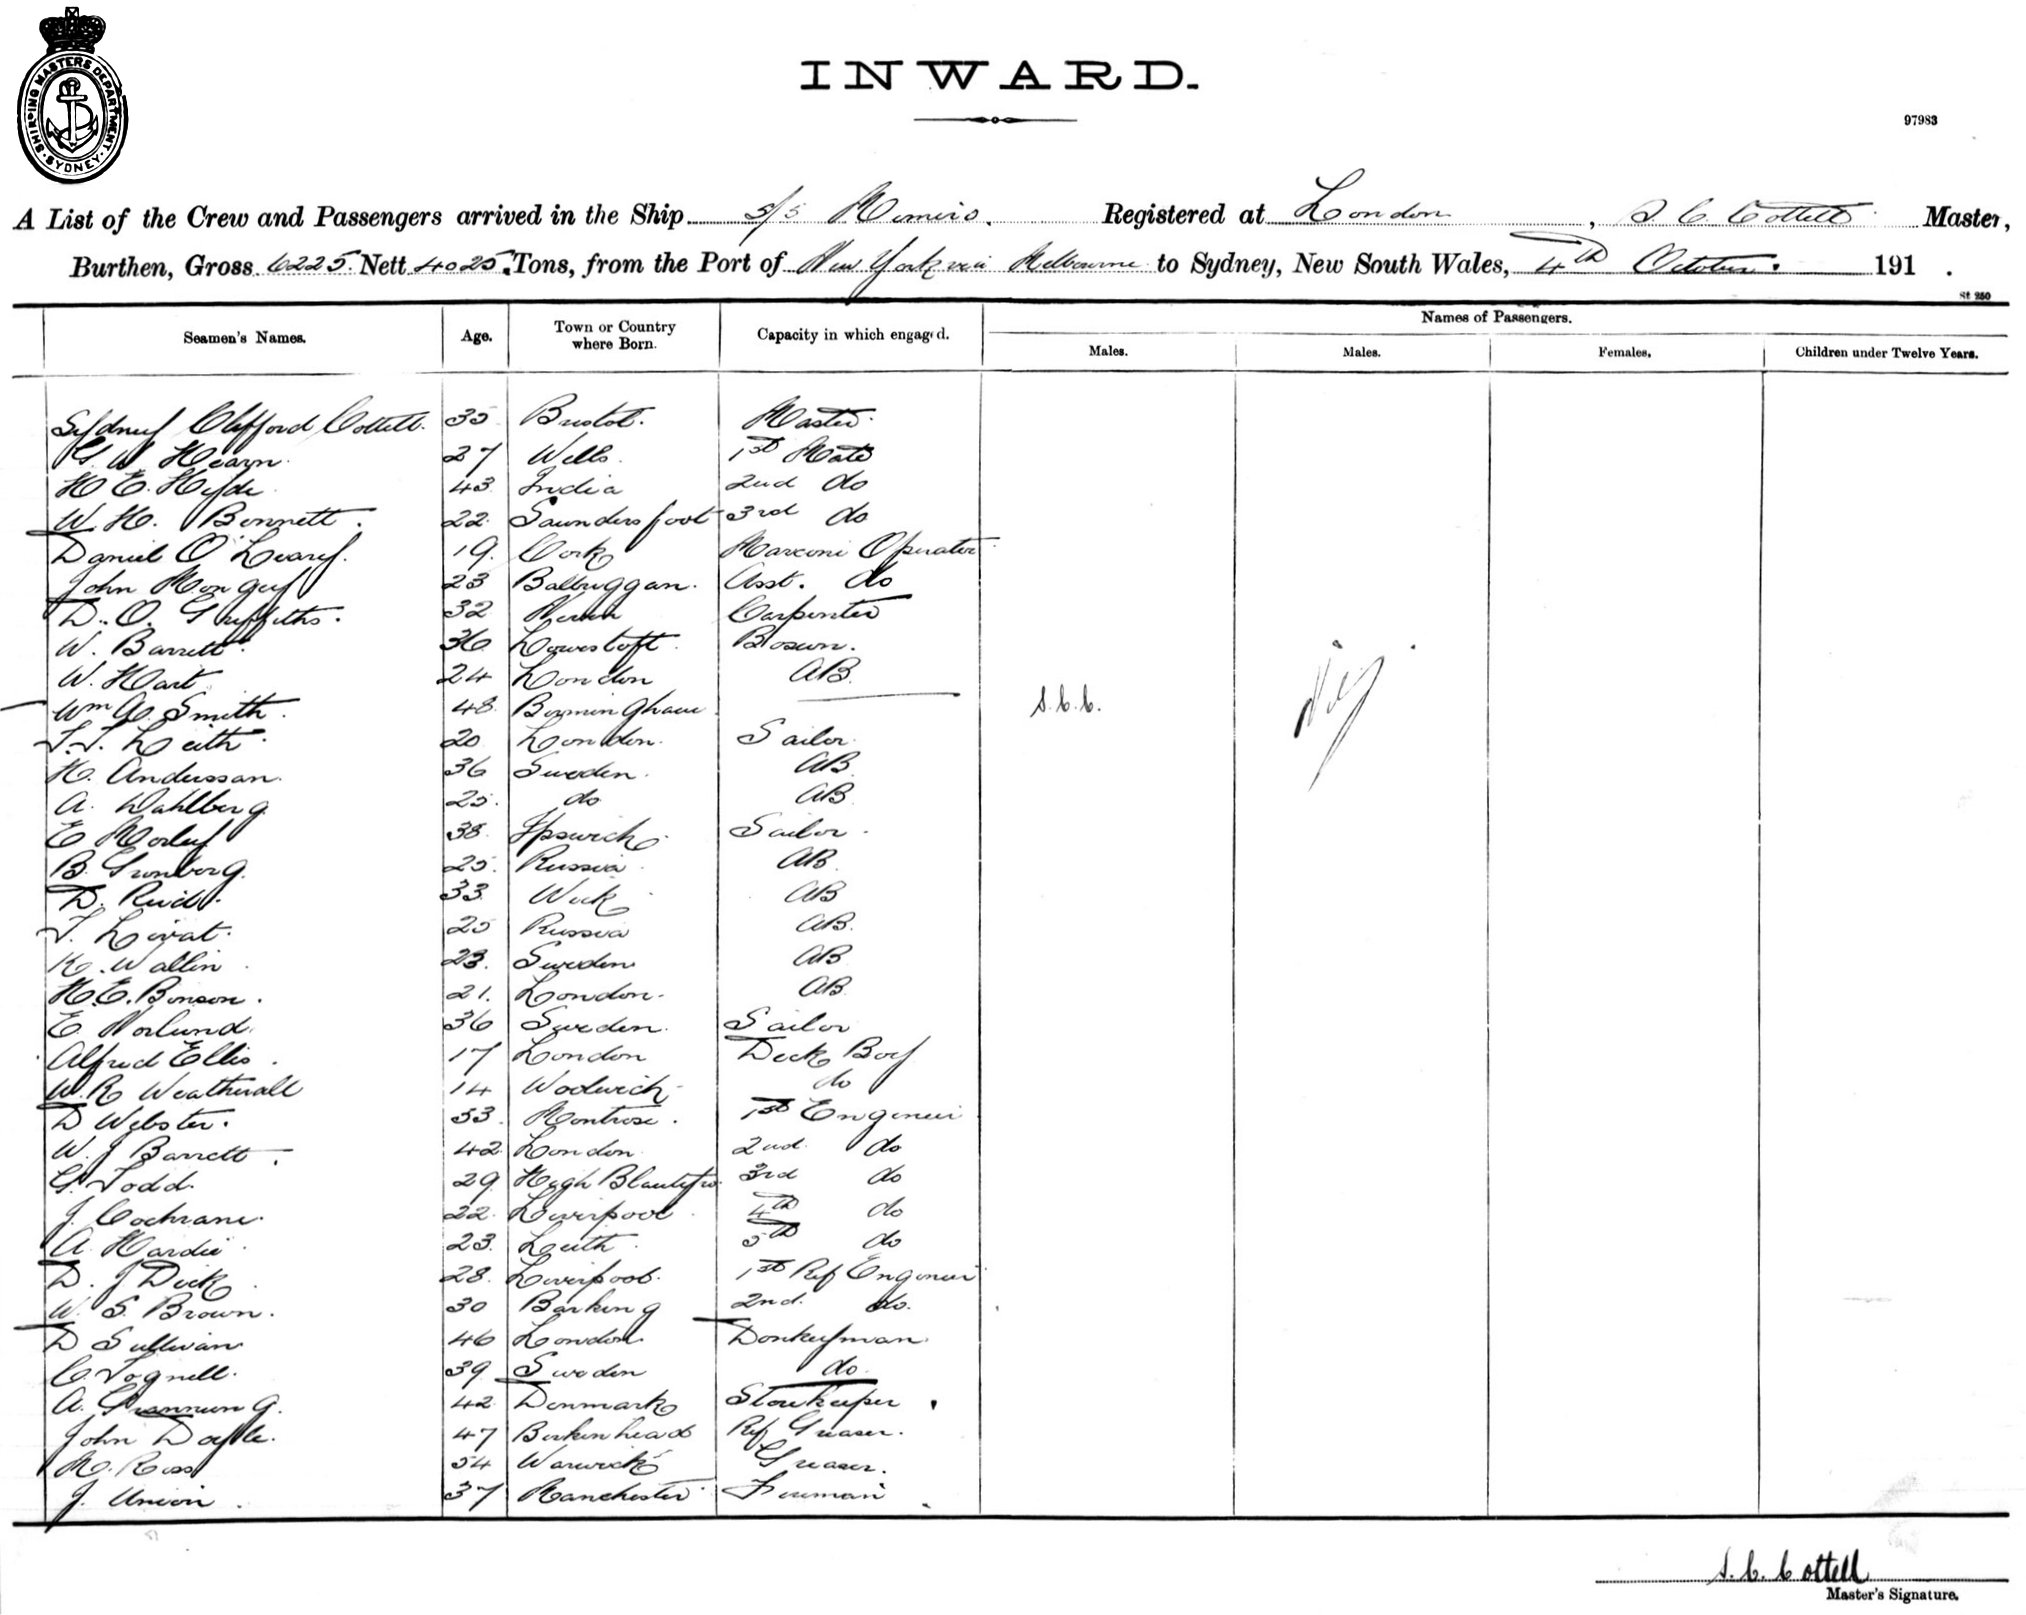 SHIPPING MASTERS DEPARTMENT. SYDNEY.
INWARD.
97983
A List of the Crew and Passengers arrived in the Ship s/s Mimiro. Registered at London, S. C. Cottell Master,
Burthen, Gross 6225 Nett 4025 Tons, from the Port of New York via Melbourne to Sydney, New South Wales, 4th October. 191 .
St 250
Seamen's Names. Age. Town or Country where Born. Capacity in which engaged. Names of Passengers.
Males. Males. Females. Children under Twelve Years.
Sydney Clifford Cottell. 35 Bristol. Master
G W Hearn. 27 Wells. 1st Mate
H E. Hyde 43 India 2nd do
W. H. Bennett. 22. Saundersfoot 3rd do
Daniel O'Leary. 19. Cork Marconi Operator
John Mongey 23 Balbriggan. Asst. do
D. O. Griffiths. 32 Carpenter
W. Barrett. 36 Lowestoft. Bosun.
W. Hart 24 London AB.
Wm A. Smith. 48. Birmingham S.C.C. Nil
T. T. Leith. 20 London. Sailor.
H. Anderssan. 36 Sweden. AB.
A. Wahlberg 25. do AB.
E Morley 38. Ipswich. Sailor.
B. Gronberg. 25. Russia AB.
D. Reid. 33. Wick AB
T. Livat. 25 Russia AB.
K. Wallin 23. Sweden AB
H. E. Benson. 21. London. AB.
E. Norlund. 36 Sweden. Sailor
Alfred Ellis. 17 London Deck Boy
W. R Weatherall 14 Woolwich do
D Webster. 53. Montrose. 1st Engineer
W. J Barrett. 42 London 2nd. do
G. Todd. 29 High Blantyre. 3rd do
J. Cochrane. 22. Liverpool. 4th do
A. Hardie 23. Leith. 5th do
D. J Dick 28. Liverpool. 1st Ref Engineer
W. S. Brown. 30 Barking 2nd. do.
D Sullivan 46 London Donkeyman
C. Tognell. 39 Sweden do.
A. 42 Denmark Storekeeper.
John Doyle. 47 Birkenhead Ref Greaser.
M. Ross 54 Warwick Greaser.
J. Union. 37 Manchester Fireman
S. C. Cottell
Master's Signature.